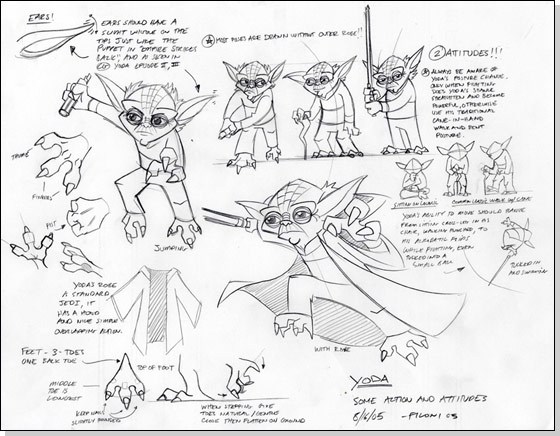 EARS!
EARS SHOULD HAVE A
SLIGHT WRINKLE ON THE
TIPS JUST LIKE THE
PUPPET IN "EMPIRE STRIKES
BACK", AND AS SEEN IN
CG YODA EPISODE II, III
MOST POSES ARE DRAWN WITHOUT OUTER ROBE!!
② ATTITUDES!!!
ALWAYS BE AWARE OF
YODA'S POSTURE CHANGE.
ONLY WHEN FIGHTING
DOES YODA'S STANCE
STRAIGHTEN AND BECOME
POWERFUL, OTHERWISE
USE HIS TRADITIONAL
CANE-IN-HAND
WALK AND BENT
POSTURE.
THUMB
FINGERS
FIST
JUMPING
SITTING ON COUNCIL
COMMON CAUTIOUS WALK W/ CANE
YODA'S ABILITY TO MOVE SHOULD RANGE
FROM SITTING CROSS-LEGGED IN HIS
CHAIR, WALKING FORWARD, TO
HIS ACROBATIC FLIPS
WHILE FIGHTING, EVEN
TUCKED INTO A
SMALL BALL
TUCKED IN
AND SWINGING
YODA'S ROBE
IS STANDARD
JEDI, IT
HAS A HOOD
AND NICE SIMPLE
OVERLAPPING ACTION.
WITH ROBE
FEET - 3 - TOES
ONE BACK TOE
TOP OF FOOT
MIDDLE
TOE IS
LONGEST
KEEP NAILS
SLIGHTLY ROUNDED
WHEN STEPPING THE
TOES NATURALLY
CLOSE THEN FLATTEN ON GROUND
YODA
SOME ACTION AND ATTITUDES
5/6/05 - FILONI